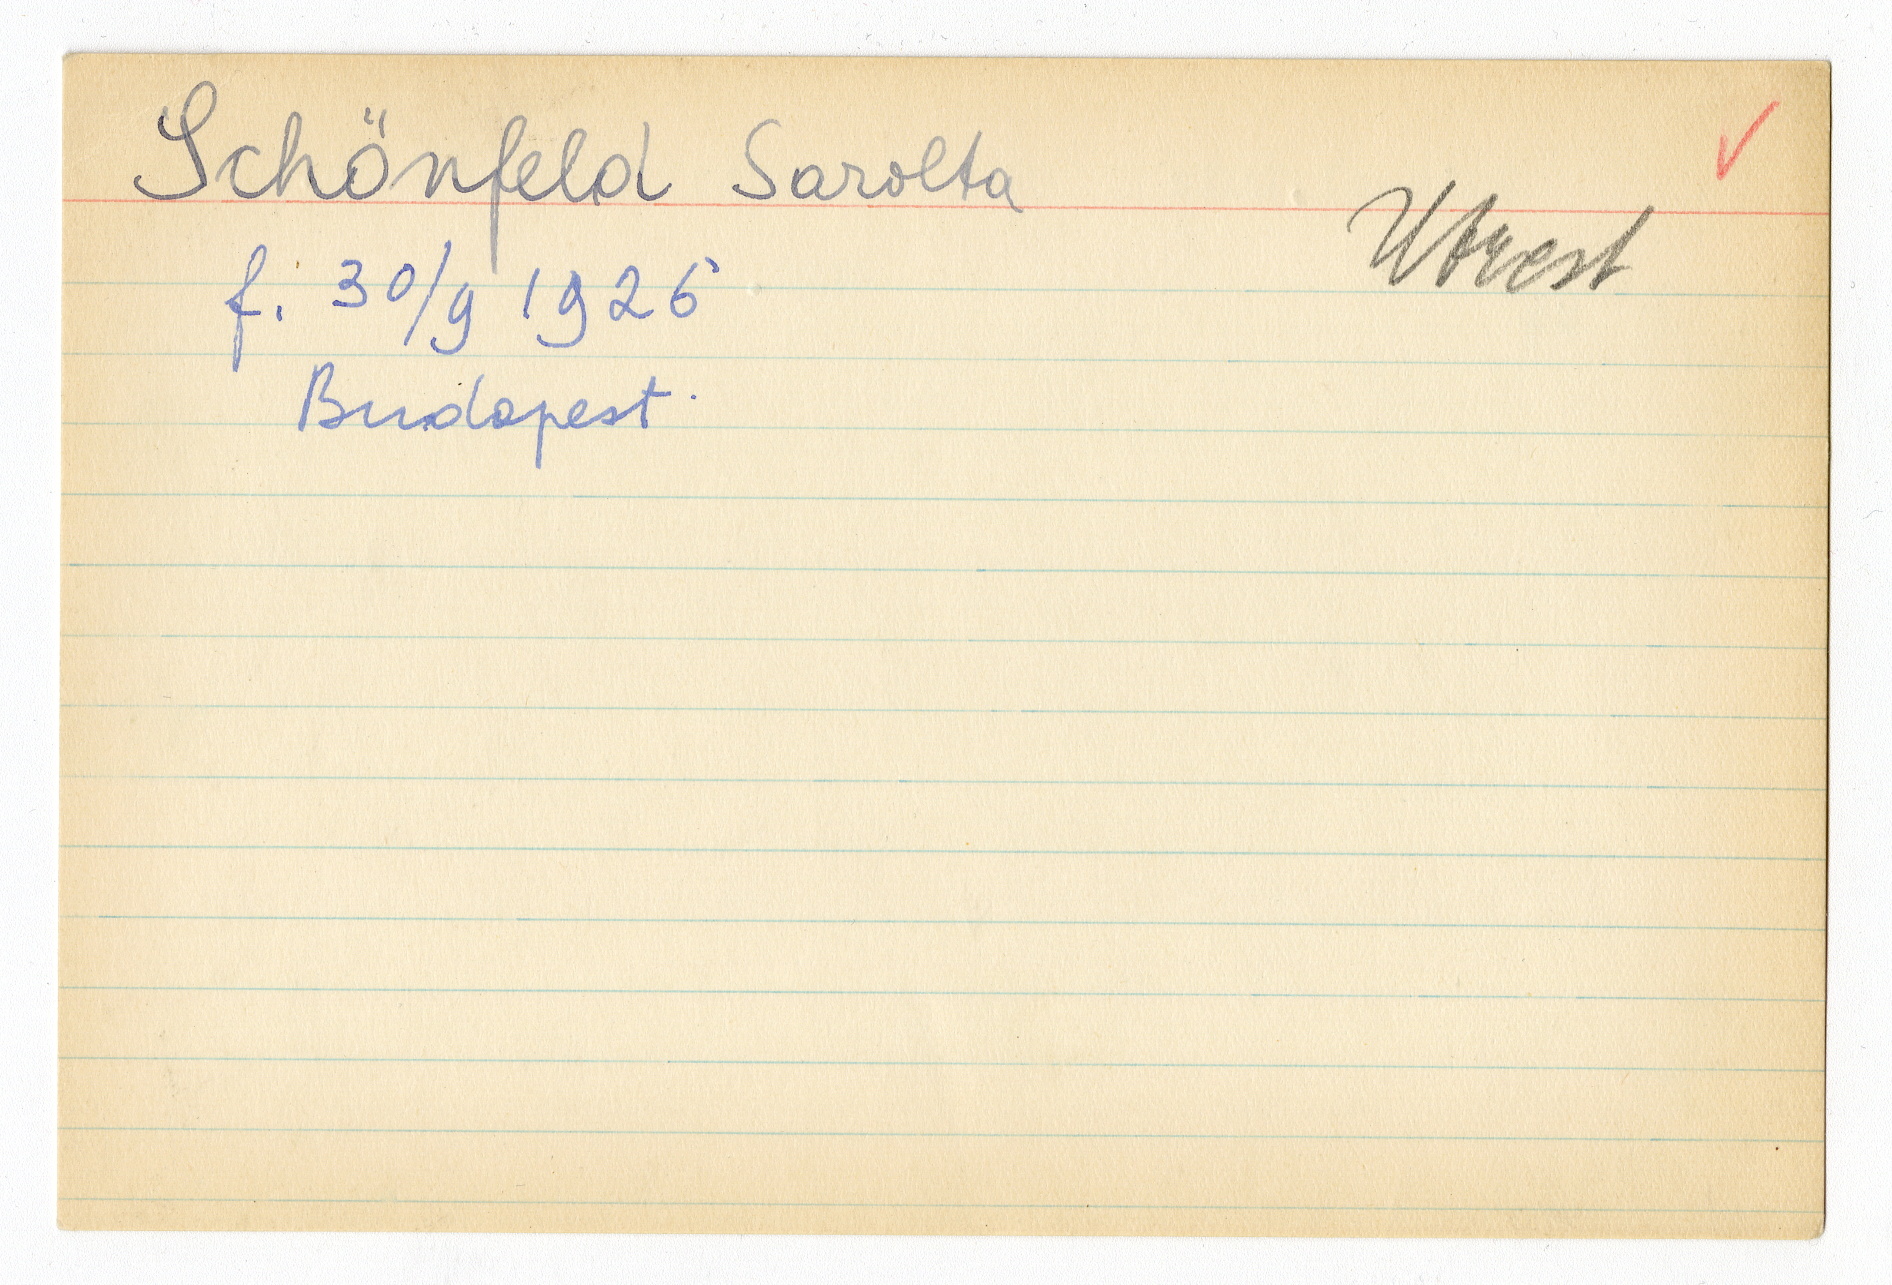 Schönfeld Sarolta
Utrest
f. 30/9 1926
Budapest.